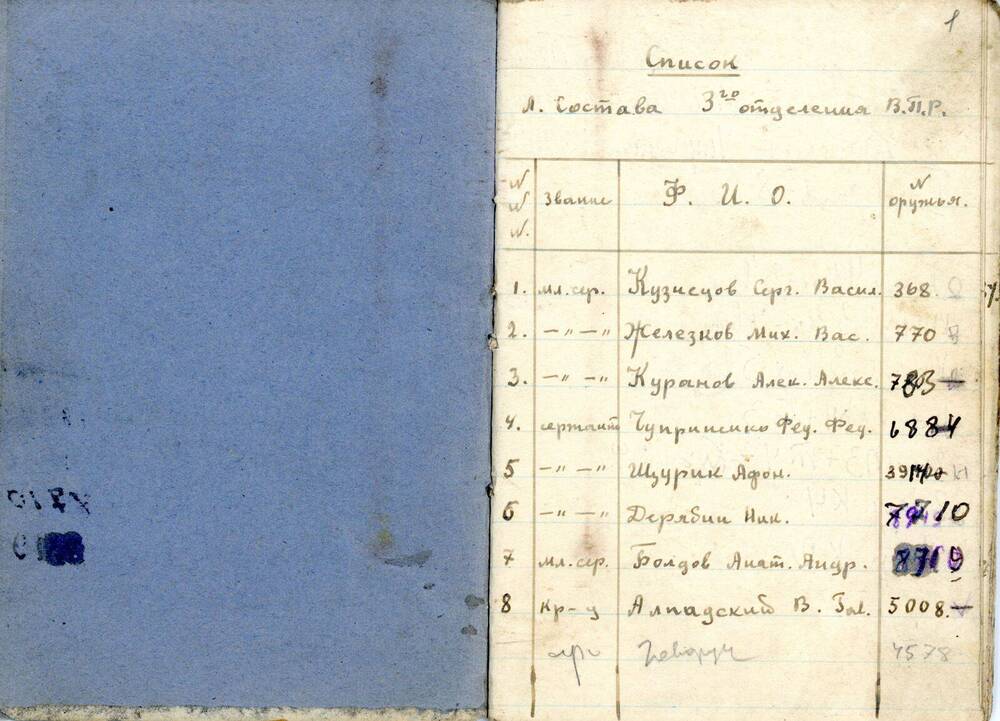 1
Список
Л. Состава 3го отделения В.П.Р.
N N N. Звание Ф. И. О. N оружья.
1. мл. сер. Кузнецов Серг. Васил. 368
2. —〃—〃 Железнов Мих. Вас. 770
3. —〃—〃 Куранов Алек. Алекс.
4. сержант Чуприненко Фед. Фед. 6884
5 —〃—〃 Щурик Афон.
6 —〃—〃 Дерябин Ник. 7710
7 мл. сер. Болдов Анат. Андр. 8719
8 кр-ц Алпадский В. 5008.—
4578